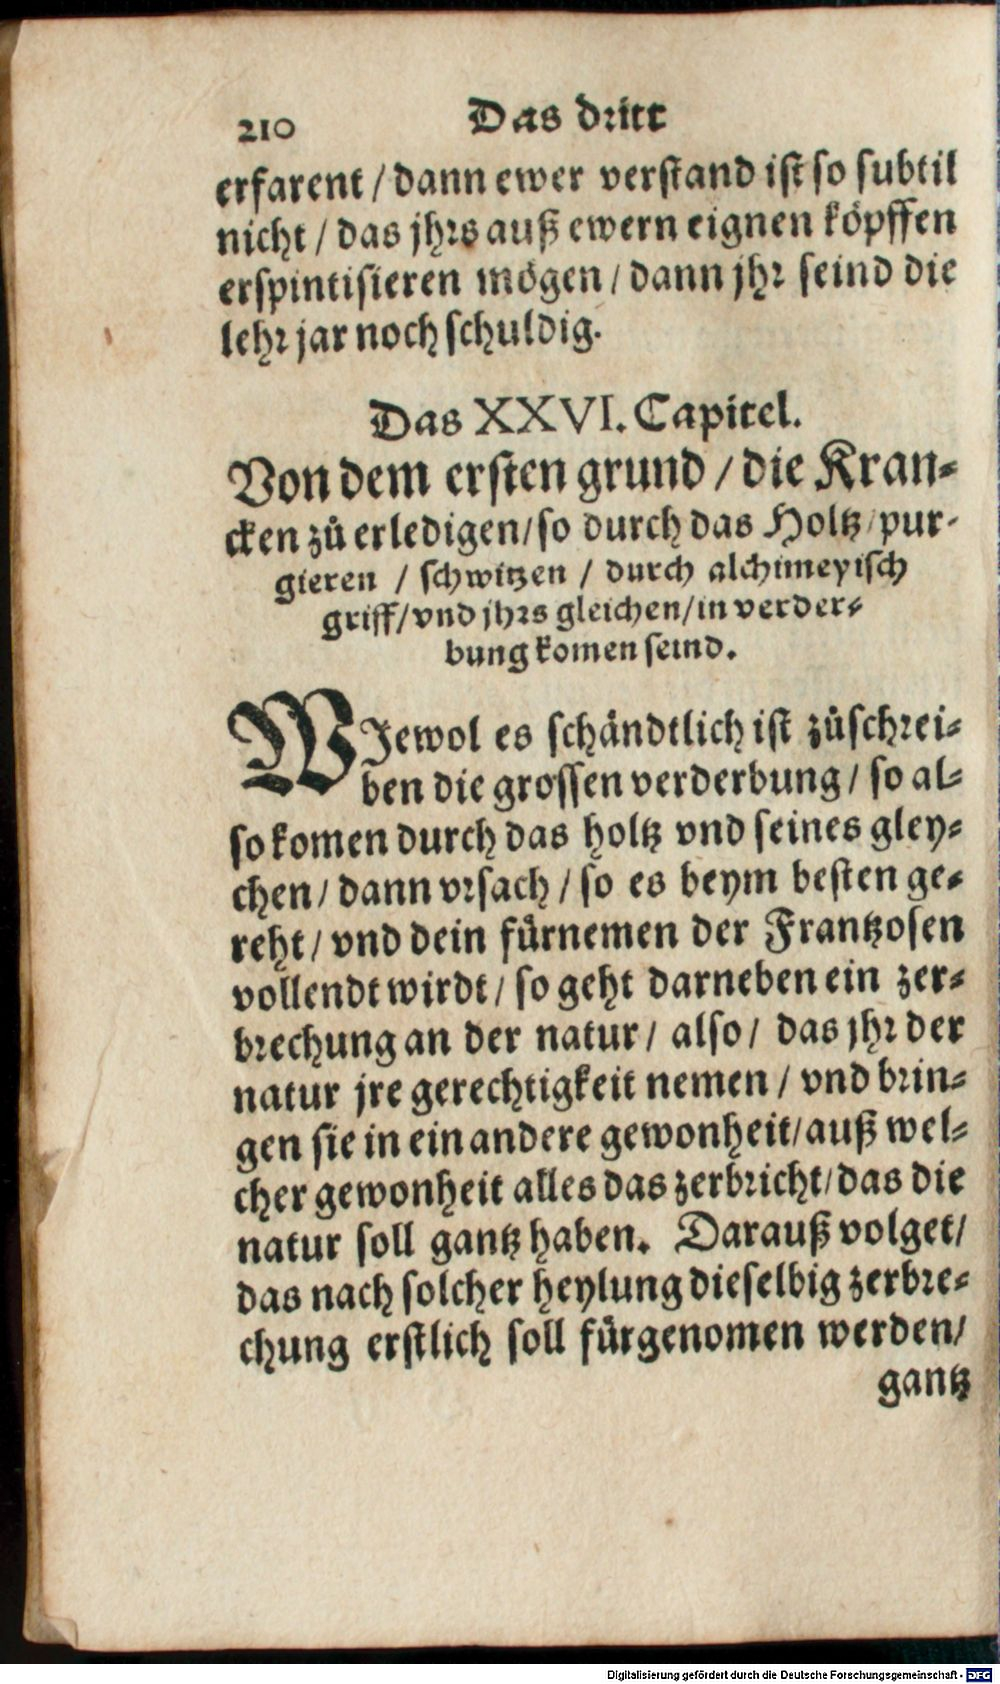 210 Das dritt
erfarent / dann ewer verstand ist so subtil
nicht / das jhrs auß ewern eignen köpffen
erspintisieren mögen / dann jhr seind die
lehr jar noch schuldig.
Das XXVI. Capitel.
Von dem ersten grund / die Kran-
cken zů erledigen / so durch das Holtz / pur-
gieren / schwitzen / durch alchimeyisch
griff / vnd jhrs gleichen / in verder-
bung komen seind.
WJewol es schändtlich ist zůschrei-
ben die grossen verderbung / so al-
so komen durch das holtz vnd seines gley-
chen / dann vrsach / so es beym besten ge-
reht / vnd dein fürnemen der Frantzosen
vollendt wirdt / so geht darneben ein zer-
brechung an der natur / also / das jhr der
natur jre gerechtigkeit nemen / vnd brin-
gen sie in ein andere gewonheit / auß wel-
cher gewonheit alles das zerbricht / das die
natur soll gantz haben. Darauß volget /
das nach solcher heylung dieselbig zerbre-
chung erstlich soll fürgenomen werden /
gantz
Digitalisierung gefördert durch die Deutsche Forschungsgemeinschaft - DFG